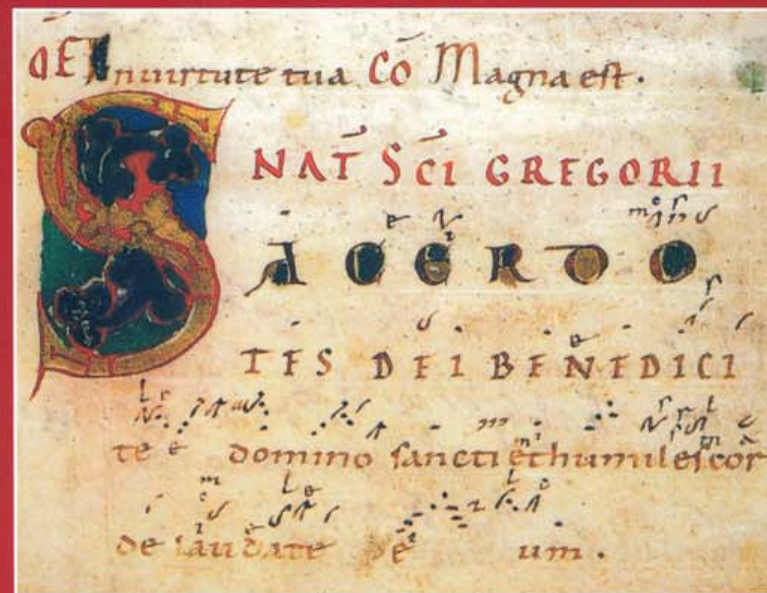 OF In uirtute tua CŌ Magna est.
NAT̄ SC̄I GREGORII
SACERDO
TES DEI BENEDICI
te domino sancti et humiles cor
de laudate de um.